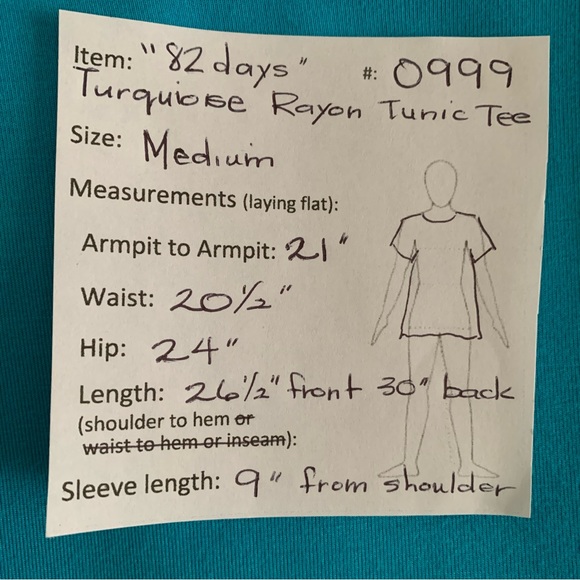 Item: "82 days" #: 0999
Turquiose Rayon Tunic Tee
Size: Medium
Measurements (laying flat):
Armpit to Armpit: 21"
Waist: 20½"
Hip: 24"
Length: 26½" front 30" back
(shoulder to hem or
waist to hem or inseam):
Sleeve length: 9" from shoulder